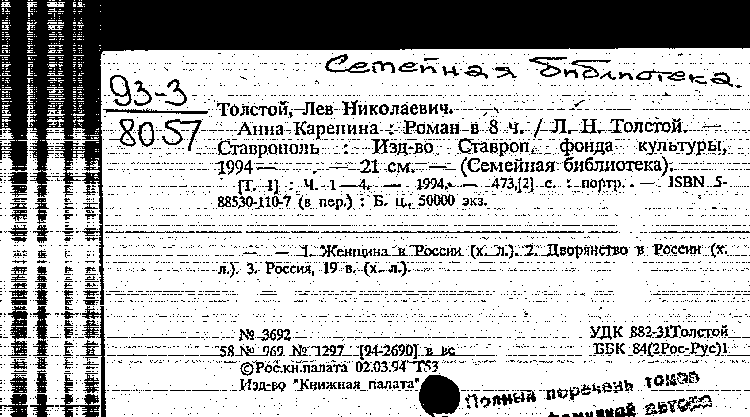 Семейная библиотека.
93-3
8057
Толстой, Лев Николаевич.
Анна Каренина : Роман в 8 ч. / Л. Н. Толстой. —
Ставрополь : Изд-во Ставроп. фонда культуры,
1994— . — 21 см. — (Семейная библиотека).
[Т. 1] : Ч. 1—4. — 1994. — 473,[2] с. : портр. — ISBN 5-
88530-110-7 (в пер.) : Б. ц., 50000 экз.
— — 1. Женщина в России (х. л.). 2. Дворянство в России (х.
л.). 3. Россия, 19 в. (х. л.).
№ 3692
УДК 882-31Толстой
58 № 969 № 1297 [94-2690] в вс
ББК 84(2Рос-Рус)1
©Рос.кн.палата 02.03.94 Т53
Изд-во "Книжная палата"
Полный перечень томов
фамилией автора